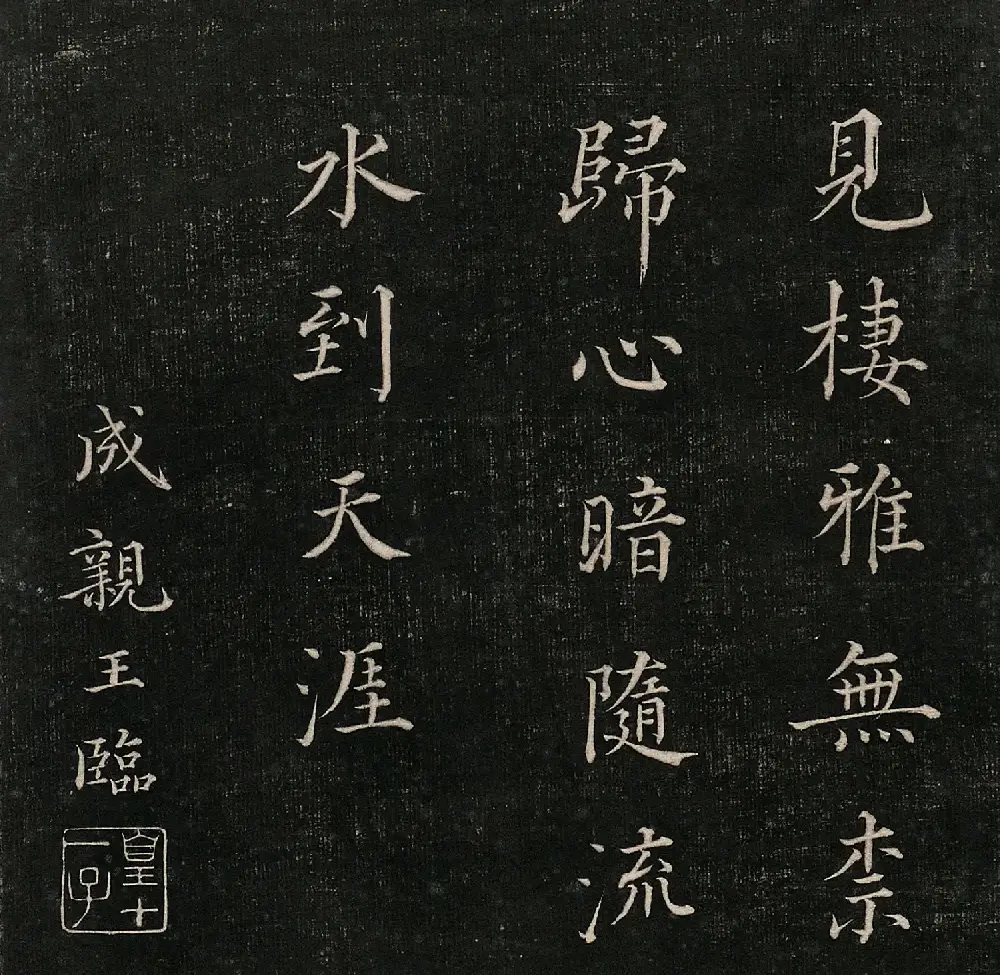 見棲雅無柰
歸心暗隨流
水到天涯
成親王臨
皇十
一子